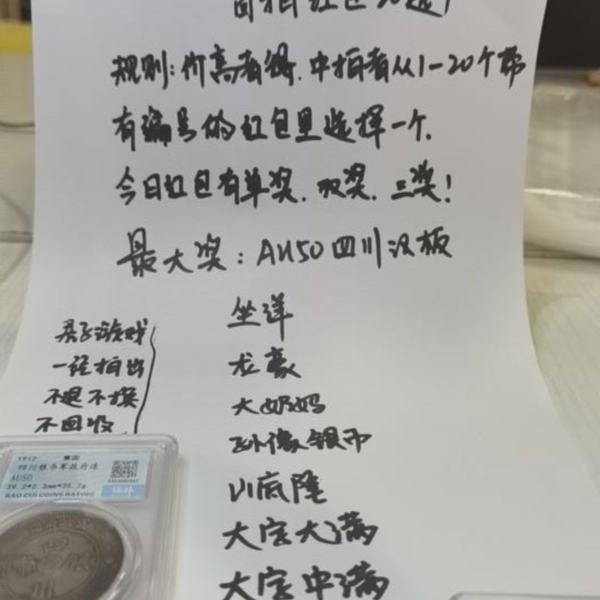 规则:价高者得.中拍者从1-20个带
有编号的红包里选择一个.
今日红包有单奖.双奖.三奖!
最大奖:AU50四川汉板
坐洋
龙毫
大奶妈
孙像银币
川底隆
大字大满
大字中满
亲子游戏
一经拍出
不退不换
不回收
1912
四川银币军政府造
AU50
39.2*2.3mm*25.7g
BAO CUI COINS RATING